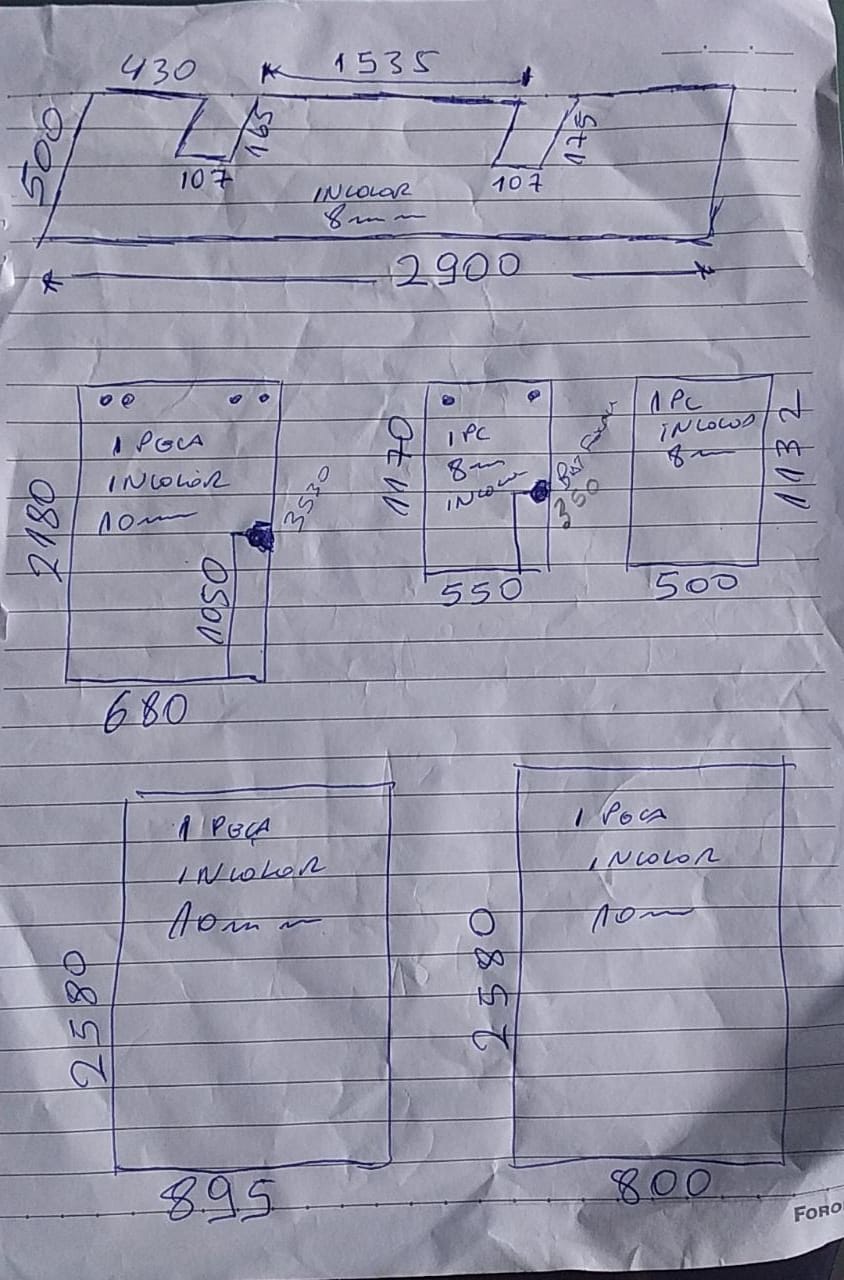 430
1535
500
165
175
107
107
INCOLOR
8mm
2900
1 PEÇA
INCOLOR
10mm
2180
3530
1050
680
1 PC
8mm
INCOLOR
1170
350
550
1 PC
INCOLOR
8mm
1132
500
1 PEÇA
INCOLOR
10mm
2580
895
1 PEÇA
INCOLOR
10mm
2580
800
FORO